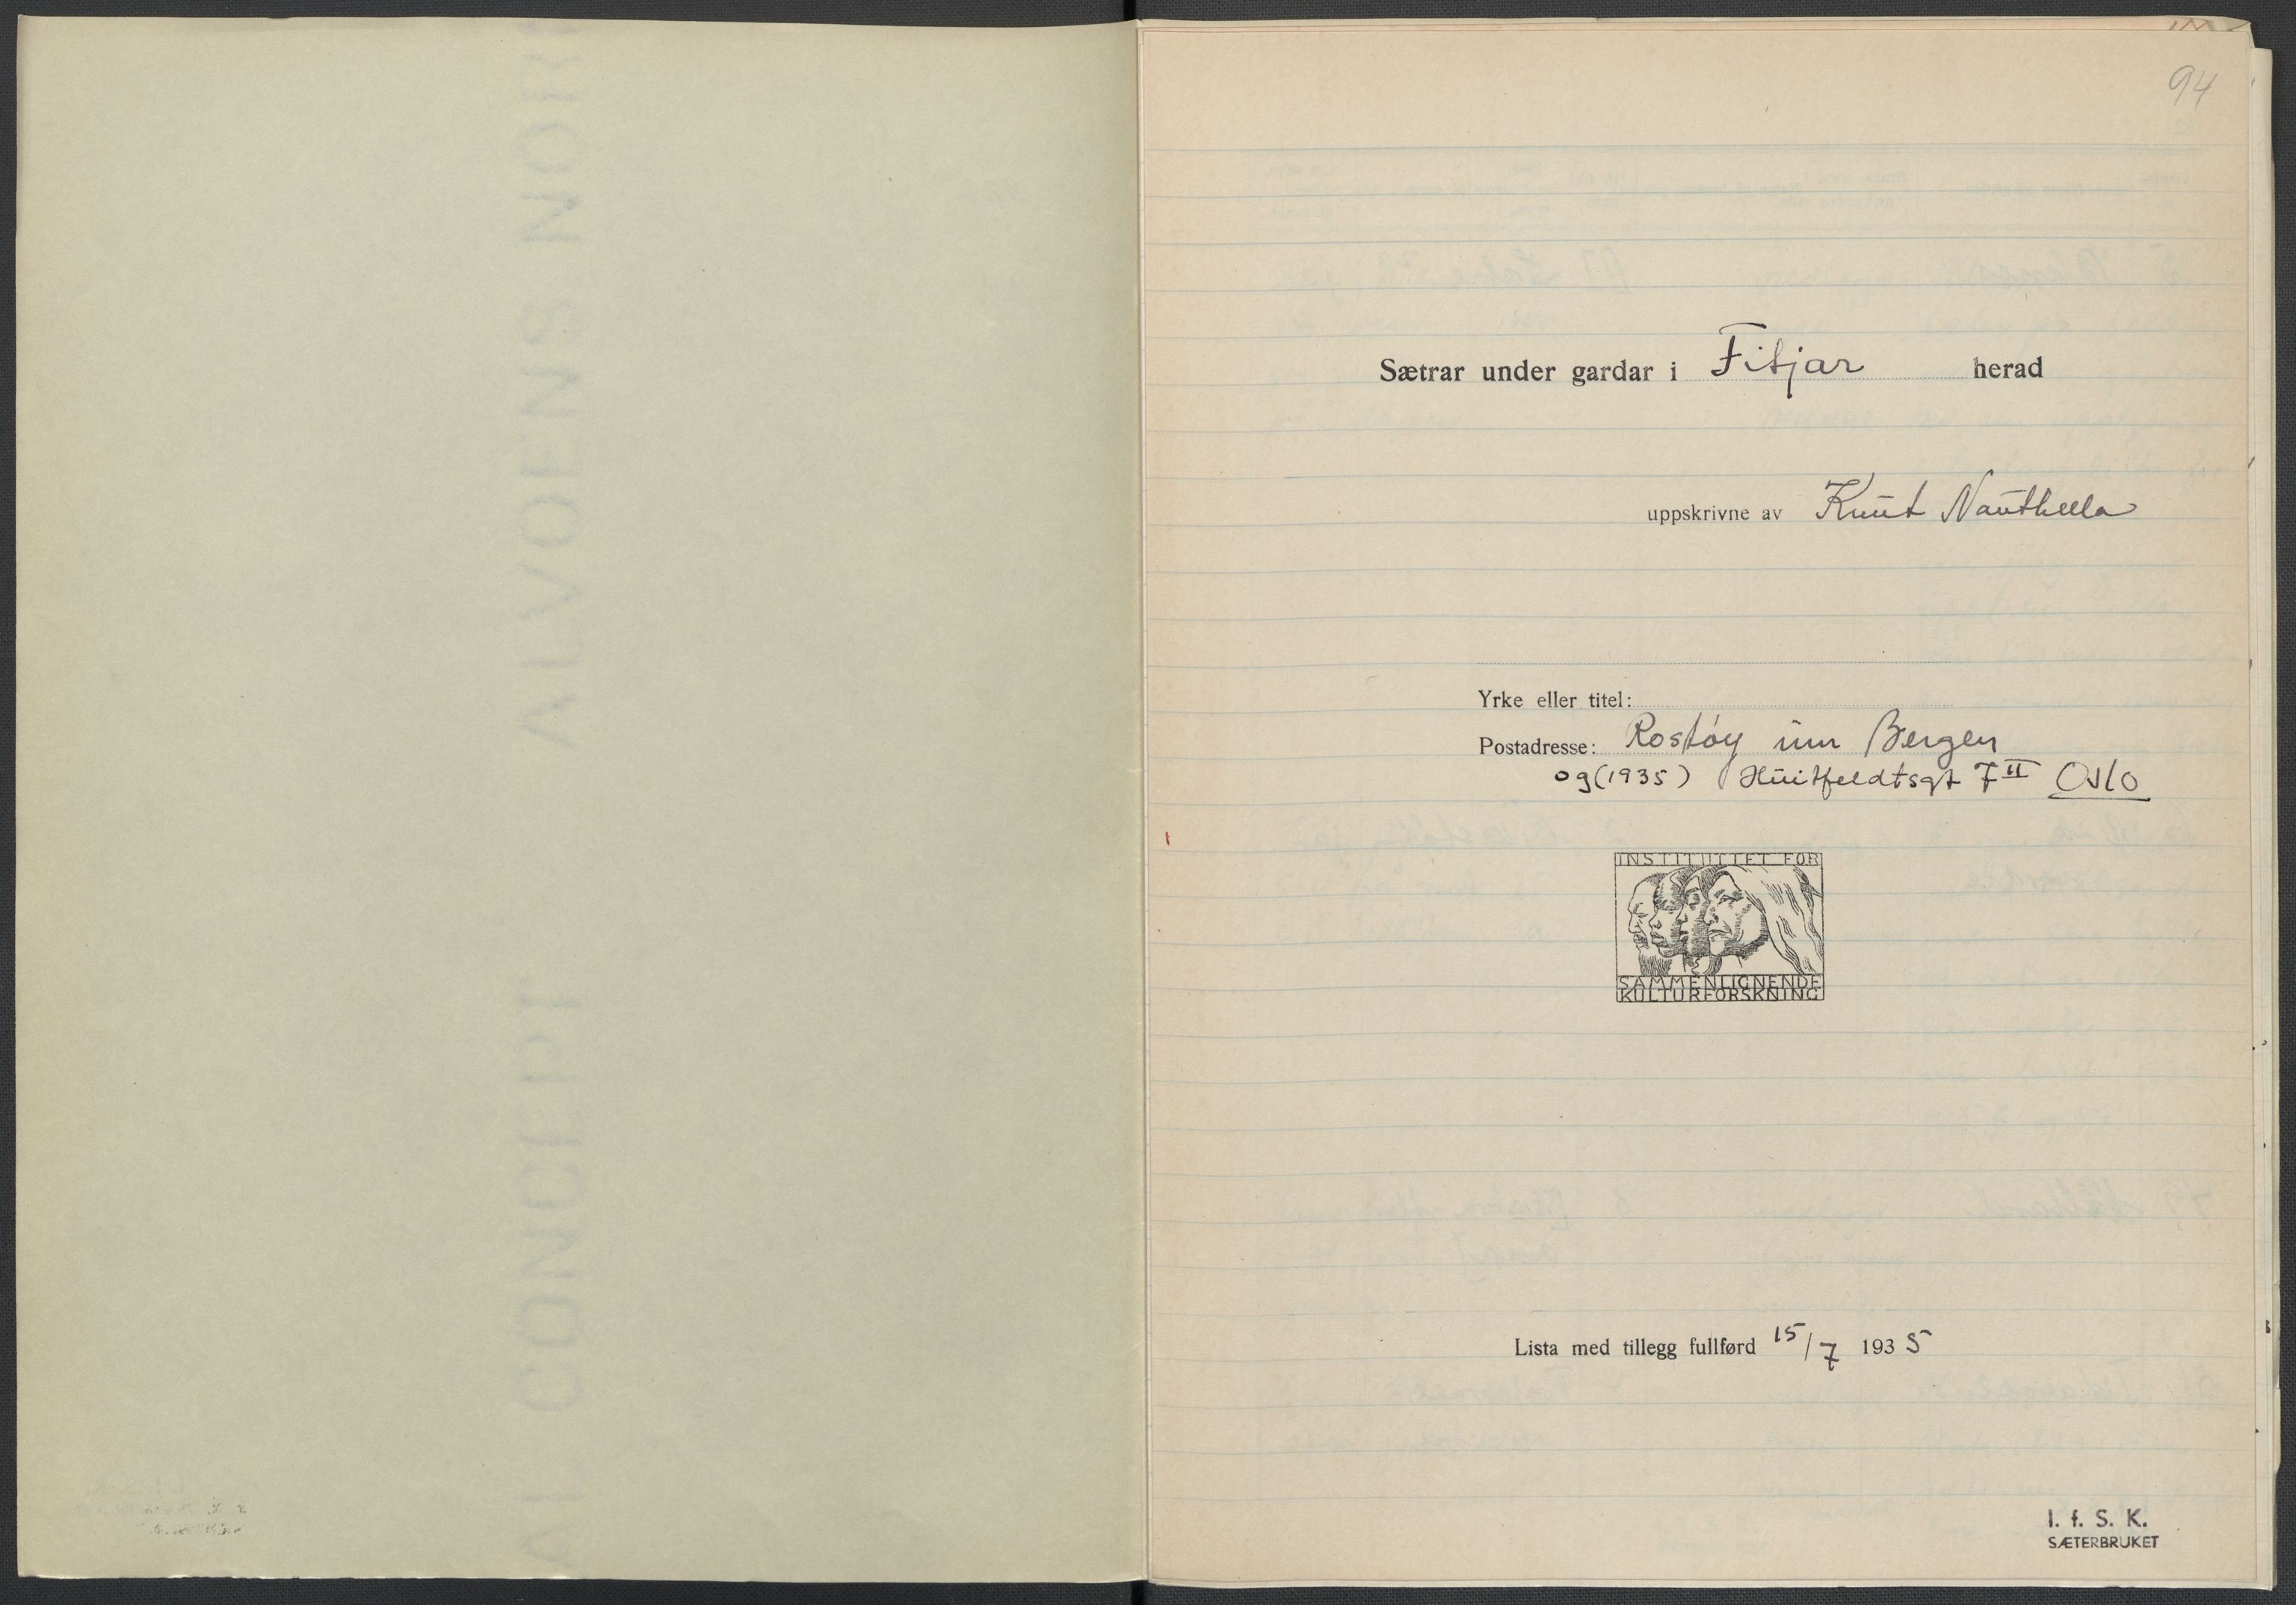 94
Sætrar under gardar i Fitjar herad
uppskrivne av Knut Nauthella
Yrke eller titel:
Postadresse: Rostøy um Bergen
og (1935) Huitfeldtsgt 7 II Oslo
INSTITUTTET FOR
SAMMENLIGNENDE
KULTURFORSKNING
Lista med tillegg fullførd 15/7 1935
I. f. S. K.
SÆTERBRUKET